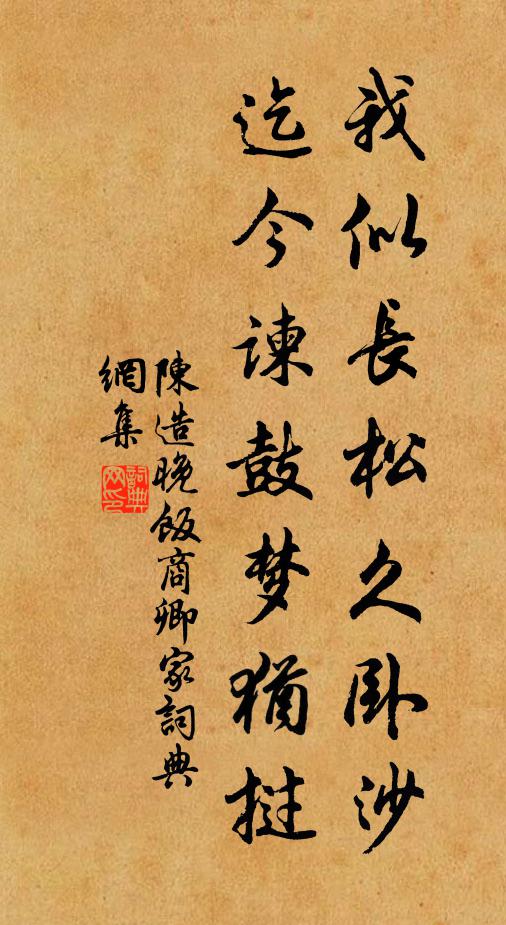 我似長松久卧沙
迄今諫鼓梦猶撾
陳造晚飯商卿家詞典
網集
詞典
网印